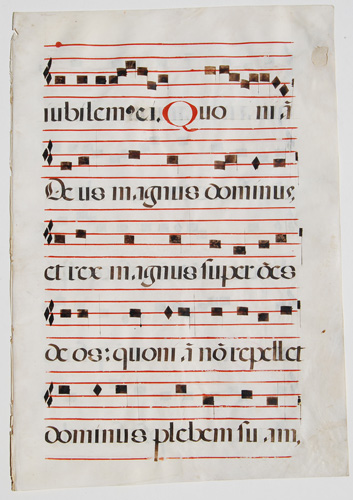 iubilem⁹ ei. Quo niā
De us magnus dominus,
et rex magnus super oēs
de os: quoni ā nō repellet
dominus plebem su am,